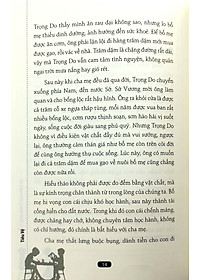 Trọng Do thấy mình ăn rau dại không sao, nhưng lo bố
mẹ thiếu dinh dưỡng, ảnh hưởng đến sức khoẻ. Để bố mẹ
được ăn cơm, ông phải lặn lội đi hàng trăm dặm mới mua
được gạo, rồi vác về nhà. Trăm dặm là chặng đường rất dài,
vậy mà Trọng Do vẫn cam tâm tình nguyện, không quản
ngại trời mưa nắng hay gió rét.
Sau này khi cha mẹ đều đã qua đời, Trọng Do chuyển
xuống phía Nam, đến nước Sở. Sở Vương mời ông làm
quan và cho bổng lộc rất hậu hĩnh. Ông ra khỏi cửa là được
cả trăm cỗ xe ngựa tháp tùng, mỗi năm được vua ban rất
nhiều bổng lộc, cơm rượu thịnh soạn, sơn hào hải vị suốt
ngày, sống cuộc đời giàu sang phú quý. Nhưng Trọng Do
không vì điều kiện vật chất đầy đủ mà vui sướng, ngược
lại, ông thường cảm thán giá như bố mẹ trên cõi đời này
để cùng ông hưởng thụ cuộc sống. Lúc này, ông có muốn
lặn lội đi cả trăm dặm để mua gạo về nuôi bố mẹ cũng
không được nữa rồi.
Hiếu thảo không phải được đo đếm bằng vật chất, mà
là sự kính trọng chân thành từ trong lòng của chúng ta. Bố
mẹ hi vọng con cái chịu khó học hành, sau này thành tài
cống hiến cho đất nước. Trong khi đó con cái chểnh mảng,
được chăng hay chớ, không chuyên tâm học hành, không
có chí hướng, đó chính là bất hiếu với cha mẹ.
Cha mẹ thắt lưng buộc bụng, dành tiền cho con đi
14
Tiến Vệ